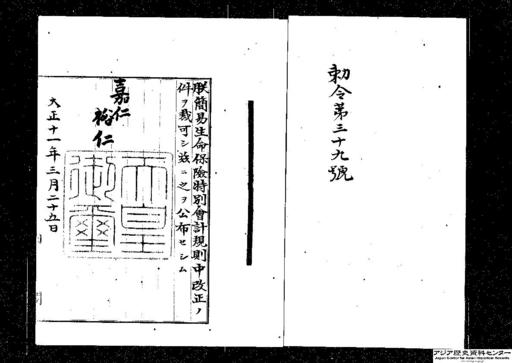 勅令第三十九號
朕簡易生命保險特別會計規則中改正ノ
件ヲ裁可シ玆ニ之ヲ公布セシム
嘉仁
裕仁
天皇御璽
大正十一年三月二十五日
アジア歴史資料センター
Japan Center for Asian Historical Records